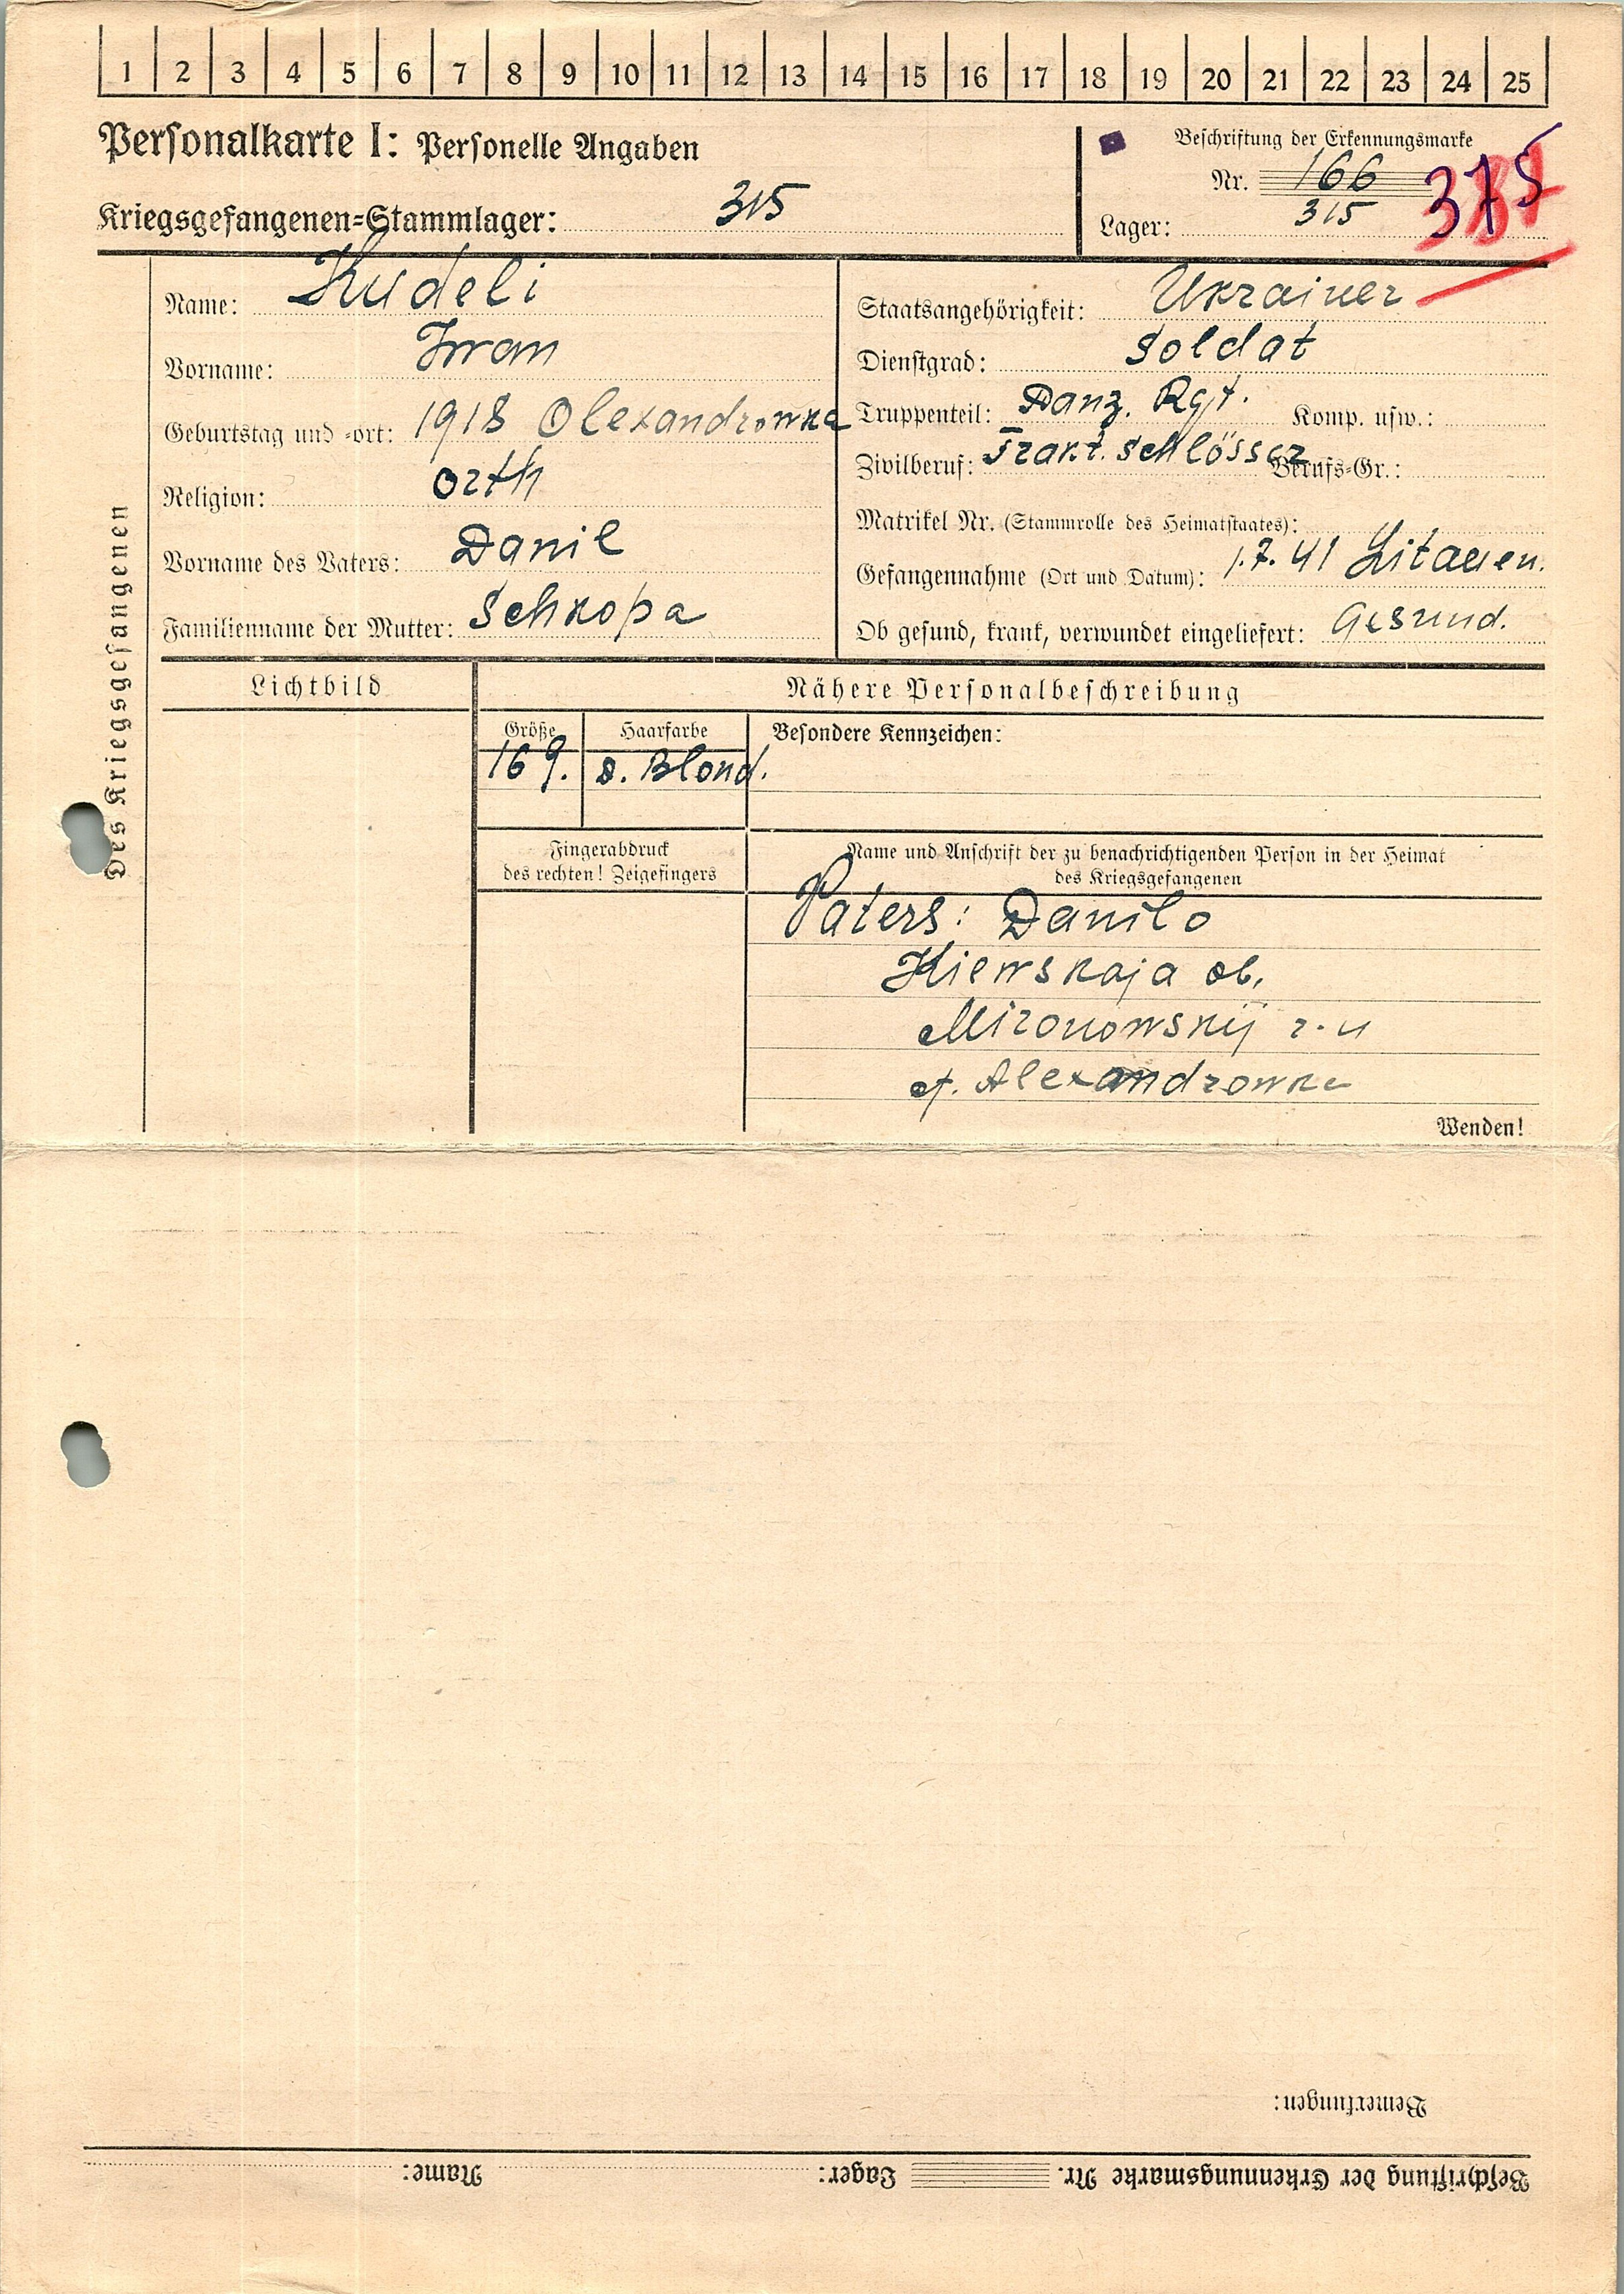 1 2 3 4 5 6 7 8 9 10 11 12 13 14 15 16 17 18 19 20 21 22 23 24 25
Personalkarte I: Personelle Angaben
Beschriftung der Erkennungsmarke
Nr. 166
Kriegsgefangenen=Stammlager: 315
Lager: 315
375
Des Kriegsgefangenen
Name: Kudeli
Vorname: Iwan
Geburtstag und -ort: 1918 Olexandrowka
Religion: Orth
Vorname des Vaters: Danil
Familienname der Mutter: Schkopa
Staatsangehörigkeit: Ukrainer
Dienstgrad: Soldat
Truppenteil: Panz. Rgt. Komp. usw.:
Zivilberuf: Trakt. Schlösser Berufs=Gr.:
Matrikel Nr. (Stammrolle des Heimatstaates):
Gefangennahme (Ort und Datum): 1.7.41 Litauen.
Ob gesund, krank, verwundet eingeliefert: Gesund.
Lichtbild
Nähere Personalbeschreibung
Größe Haarfarbe Besondere Kennzeichen:
169. d. Blond.
Fingerabdruck
des rechten! Zeigefingers
Name und Anschrift der zu benachrichtigenden Person in der Heimat
des Kriegsgefangenen
Vaters: Danilo
Kiewskaja ob.
Mironowskij r.n
Alexandrowka
Wenden!
Bemerkungen:
Beschriftung der Erkennungsmarke Nr. Lager: Name: